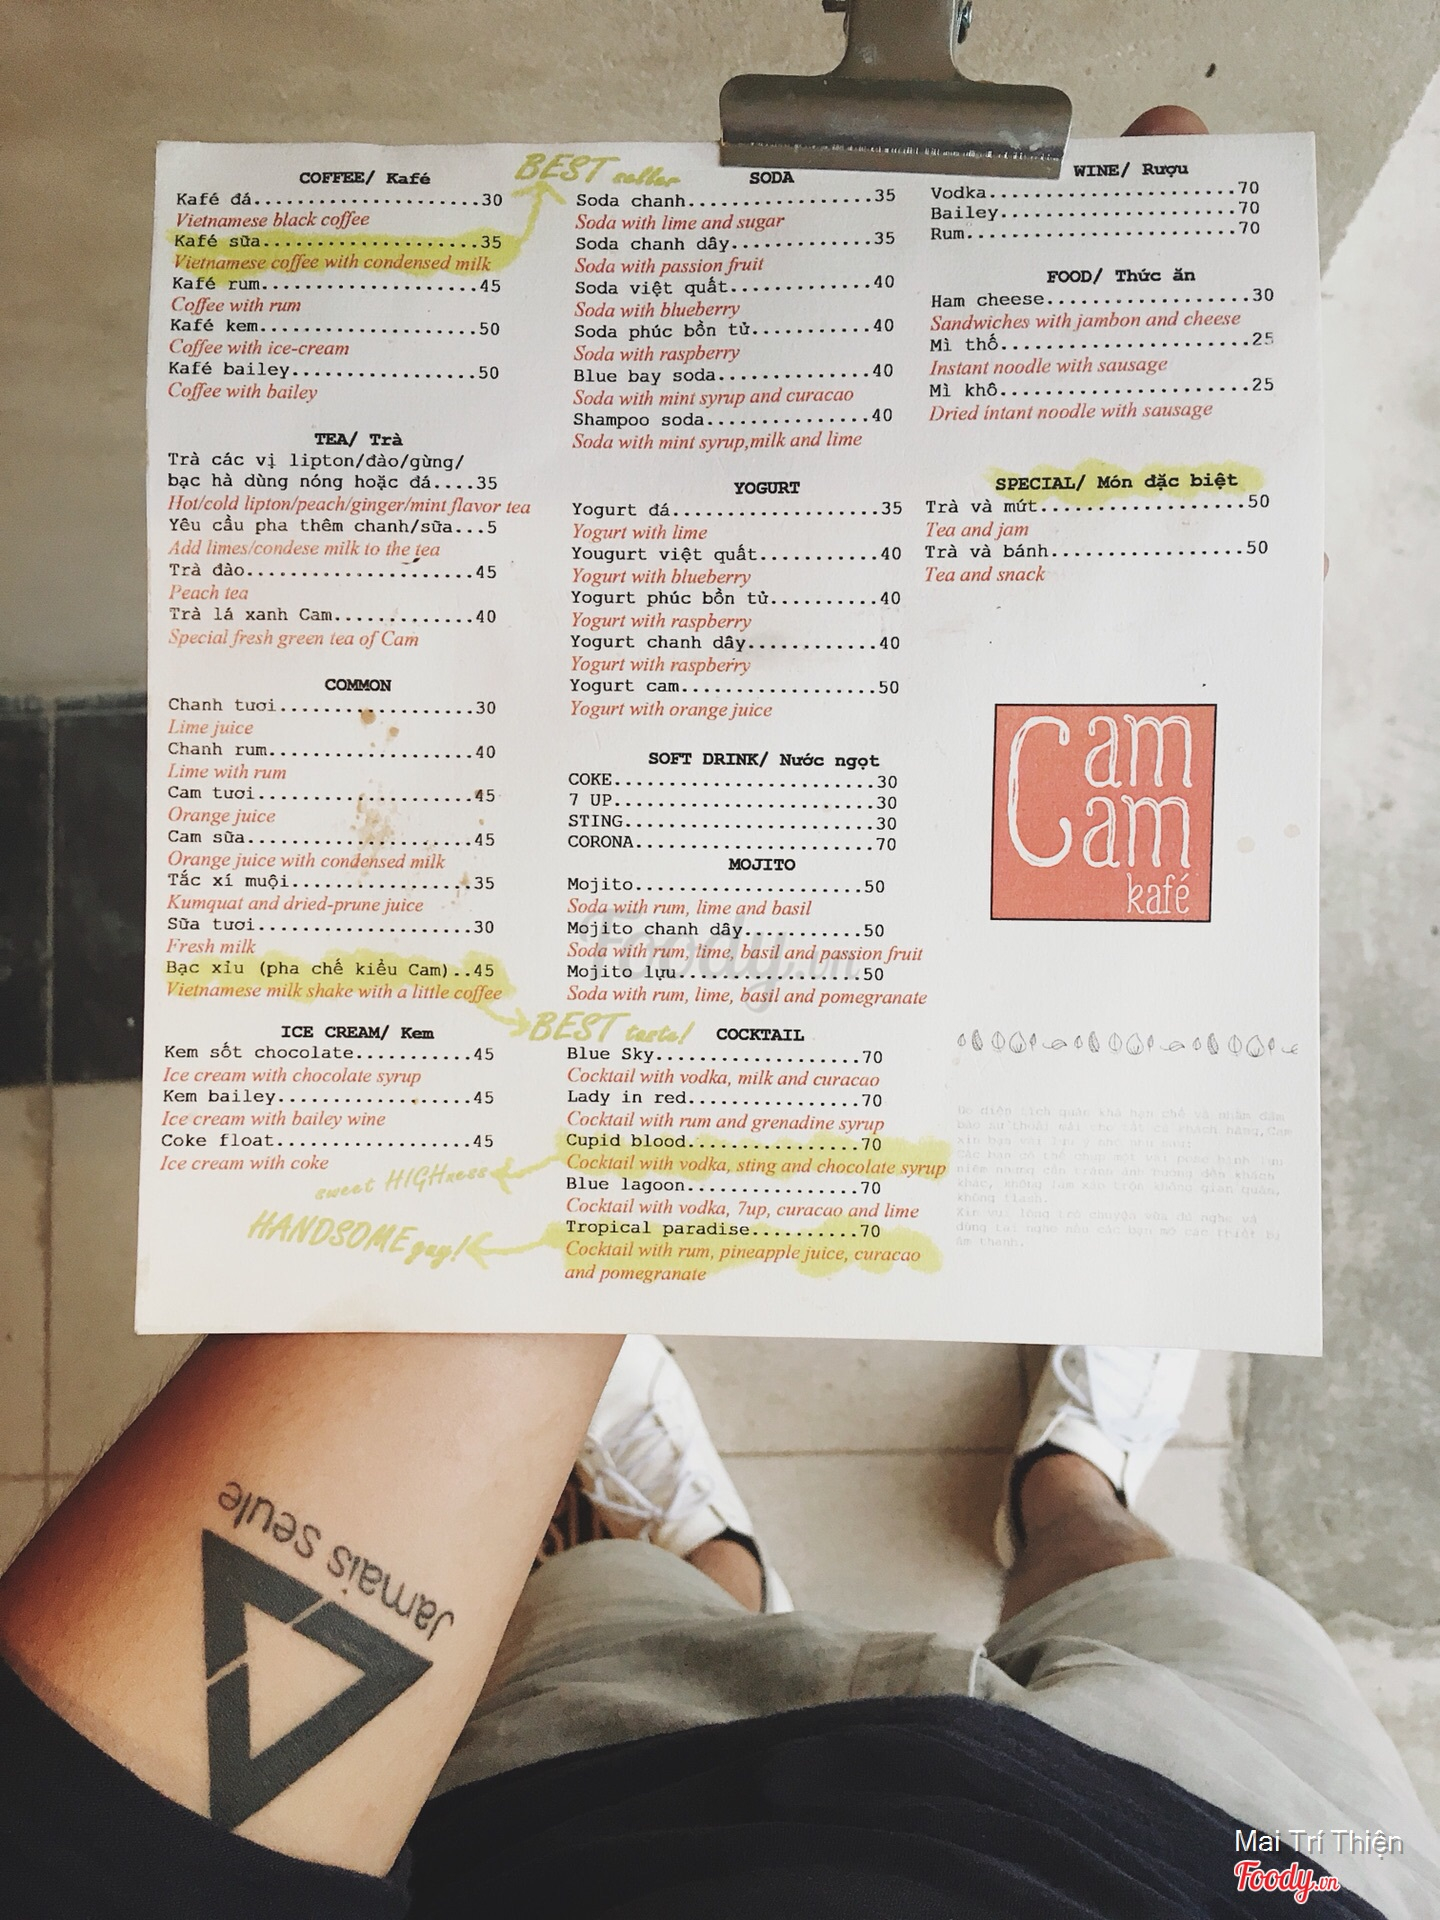 BEST seller
COFFEE/ Kafé
Kafé đá....................30
Vietnamese black coffee
Kafé sữa...................35
Vietnamese coffee with condensed milk
Kafé rum...................45
Coffee with rum
Kafé kem...................50
Coffee with ice-cream
Kafé bailey................50
Coffee with bailey
TEA/ Trà
Trà các vị lipton/đào/gừng/
bạc hà dùng nóng hoặc đá....35
Hot/cold lipton/peach/ginger/mint flavor tea
Yêu cầu pha thêm chanh/sữa...5
Add limes/condese milk to the tea
Trà đào....................45
Peach tea
Trà lá xanh Cam.............40
Special fresh green tea of Cam
COMMON
Chanh tươi.................30
Lime juice
Chanh rum..................40
Lime with rum
Cam tươi...................45
Orange juice
Cam sữa....................45
Orange juice with condensed milk
Tắc xí muội................35
Kumquat and dried-prune juice
Sữa tươi...................30
Fresh milk
Bạc xỉu (pha chế kiểu Cam)..45
Vietnamese milk shake with a little coffee
BEST taste!
ICE CREAM/ Kem
Kem sốt chocolate..........45
Ice cream with chocolate syrup
Kem bailey.................45
Ice cream with bailey wine
Coke float.................45
Ice cream with coke
sweet HIGHness
HANDSOME guy!
SODA
Soda chanh................35
Soda with lime and sugar
Soda chanh dây............35
Soda with passion fruit
Soda việt quất............40
Soda with blueberry
Soda phúc bồn tử..........40
Soda with raspberry
Blue bay soda.............40
Soda with mint syrup and curacao
Shampoo soda..............40
Soda with mint syrup,milk and lime
YOGURT
Yogurt đá..................35
Yogurt with lime
Yougurt việt quất..........40
Yogurt with blueberry
Yogurt phúc bồn tử.........40
Yogurt with raspberry
Yogurt chanh dây...........40
Yogurt with raspberry
Yogurt cam.................50
Yogurt with orange juice
SOFT DRINK/ Nước ngọt
COKE......................30
7 UP......................30
STING.....................30
CORONA....................70
MOJITO
Mojito...................50
Soda with rum, lime and basil
Mojito chanh dây..........50
Soda with rum, lime, basil and passion fruit
Mojito lựu................50
Soda with rum, lime, basil and pomegranate
Foody.vn
COCKTAIL
Blue Sky.................70
Cocktail with vodka, milk and curacao
Lady in red..............70
Cocktail with rum and grenadine syrup
Cupid blood..............70
Cocktail with vodka, sting and chocolate syrup
Blue lagoon..............70
Cocktail with vodka, 7up, curacao and lime
Tropical paradise.........70
Cocktail with rum, pineapple juice, curacao
and pomegranate
WINE/ Rượu
Vodka....................70
Bailey...................70
Rum......................70
FOOD/ Thức ăn
Ham cheese................30
Sandwiches with jambon and cheese
Mì thố....................25
Instant noodle with sausage
Mì khô....................25
Dried intant noodle with sausage
SPECIAL/ Món đặc biệt
Trà và mứt.................50
Tea and jam
Trà và bánh................50
Tea and snack
Cam
Cam
kafé
Do diện tích quán khá hạn chế và nhằm đảm
bảo sự thoải mái cho tất cả khách hàng, Cam
xin bạn
khác, không làm xáo trộn không gian quán,
không flash.
Xin vui lòng trò chuyện vừa đủ nghe và
âm thanh.
Jamais seule
Mai Trí Thiện
Foody.vn